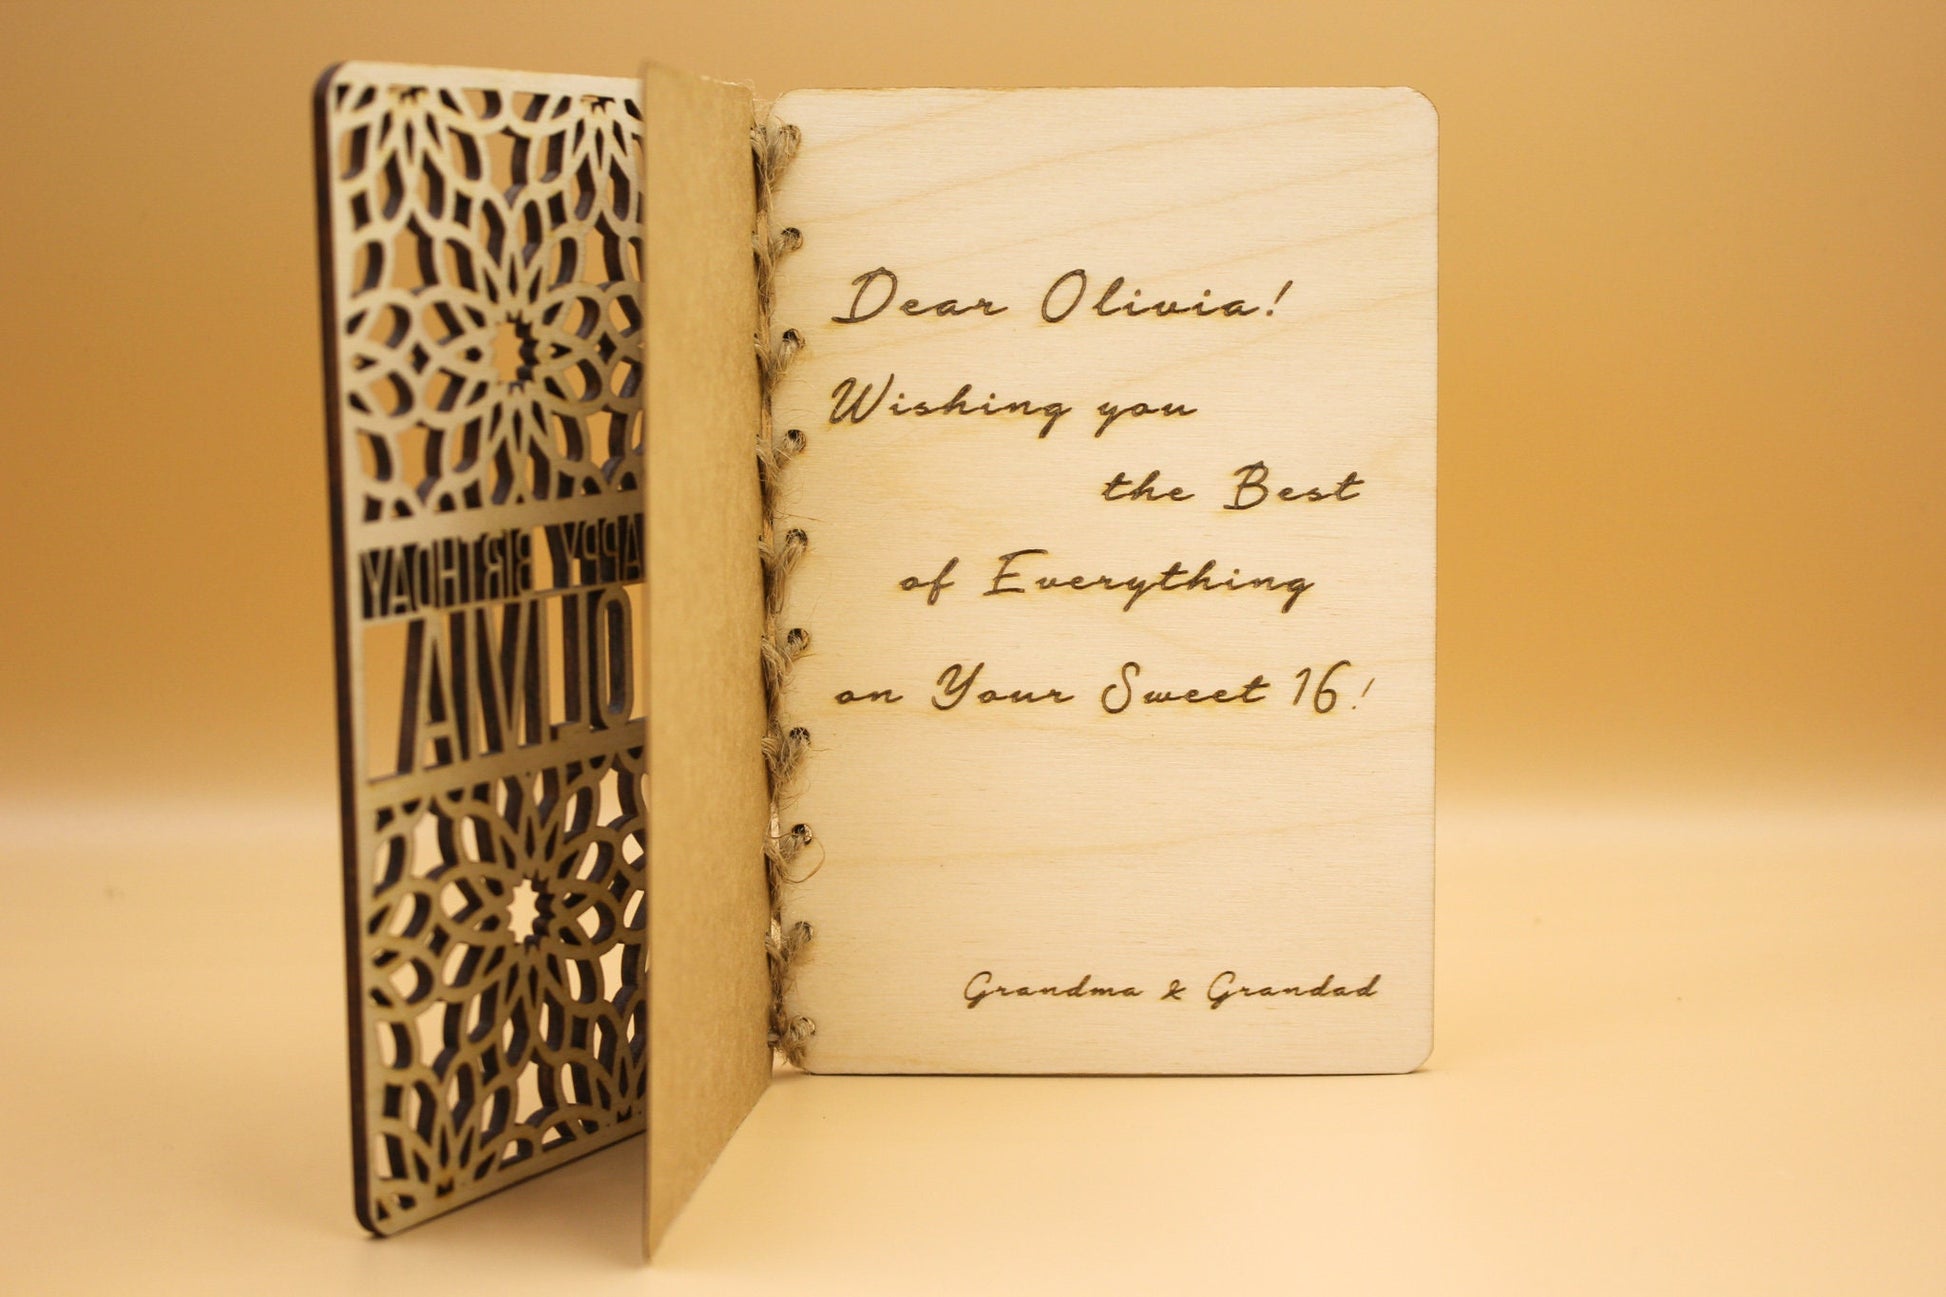 APPY BIRTHDAY
OLIVIA
Dear Olivia!
Wishing you
the Best
of Everything
on Your Sweet 16!
Grandma & Grandad